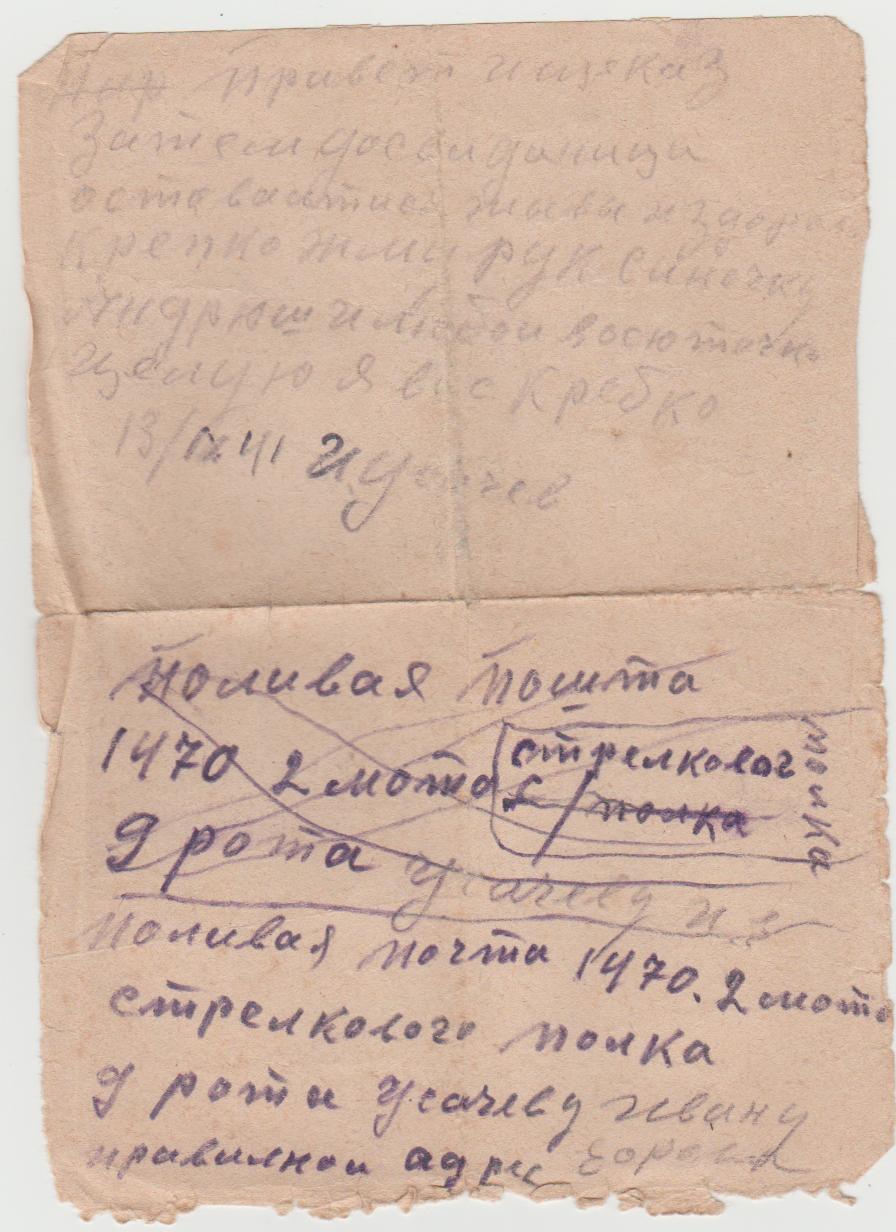 Привет и щеказ
Затем досвидания
оставайтись живы и здоров
Крепко жми рук синочку
Андрюши и любой васюточки
Целую я вас Кребко
13/IX 41 И Усачев
Поливая пошта
1470 2 мото стрелковог
полка полка
9 рота Усачеву и з
Поливая почта 1470. 2 мото
стрелкового полка
9 роти Усачеву Ивану
правилной адрес